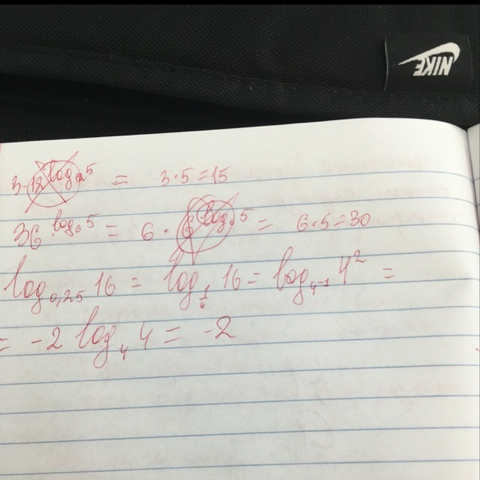 NIKE
3·12^{log_{12}5} = 3·5=15
36^{log_6 5} = 6·6^{log_6 5} = 6·5=30
log_{0,25} 16 = log_{1/4} 16 = log_{4^{-1}} 4^2 =
= -2 log_4 4 = -2